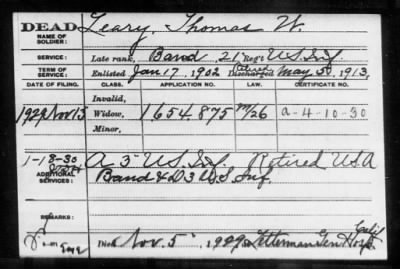 DEAD Leary, Thomas W.
NAME OF SOLDIER:
SERVICE: Late rank, Band, 21" Reg't U.S. Inf.
TERM OF SERVICE: Enlisted Jan 17, 1902 Retired Discharged May 30, 1913.
DATE OF FILING. CLASS. APPLICATION NO. LAW. CERTIFICATE NO.
Invalid,
1929 Nov 15 Widow, 1654,875 A-4-10-30
Minor,
1-18-30 A 3" U.S. Inf. Retired U.S.A
ADDITIONAL SERVICES: Band & D 3 U.S. Inf.
REMARKS:
Calif
Died Nov. 5", 1929, Letterman Gen Hosp.